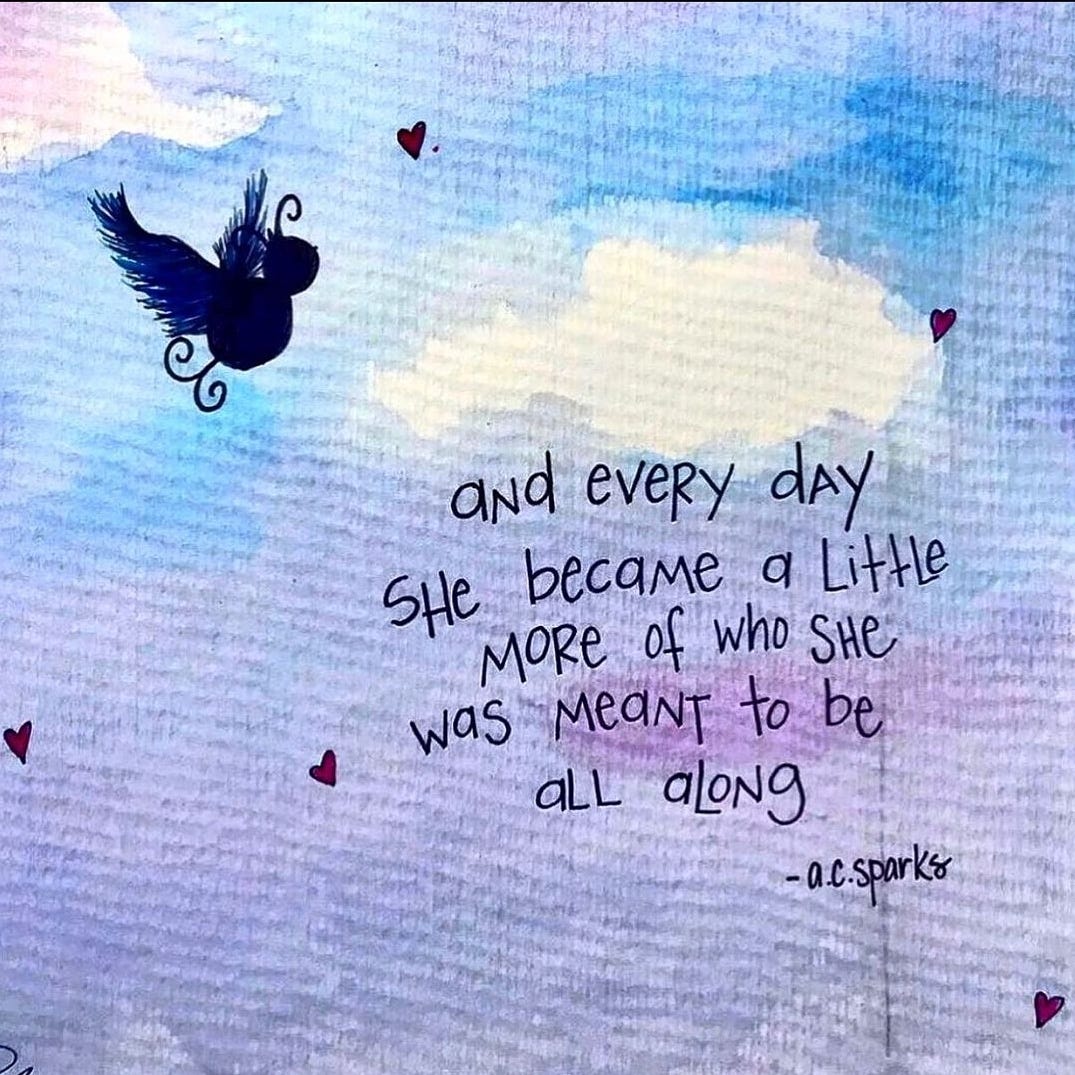 and every day
SHe became a Little
MORe of who SHe
was MeaNT to be
aLL aLoNg
-a.c.sparks